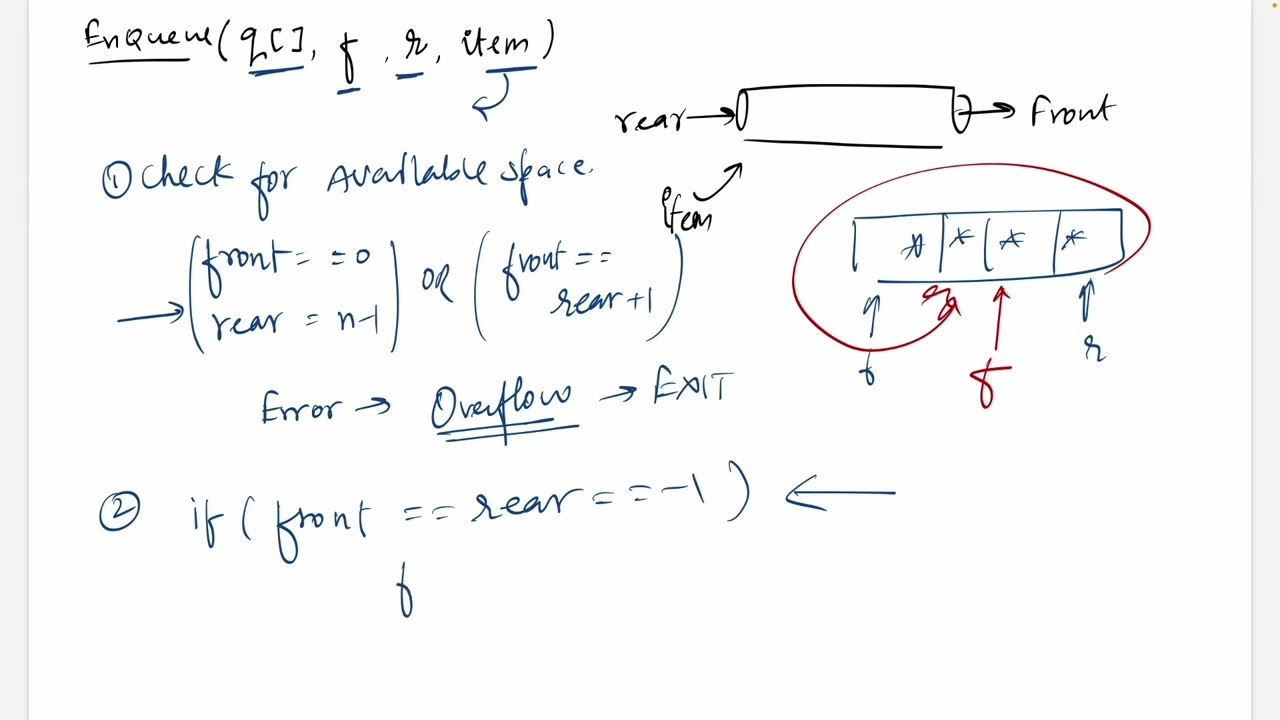 EnQueue(q[], f, r, item)
rear → → Front
item
① Check for Available space.
(front = = 0
rear = n-1) OR (front ==
rear+1)
* * * *
f r f r
Error → Overflow → EXIT
② if (front == rear == -1) ←
f